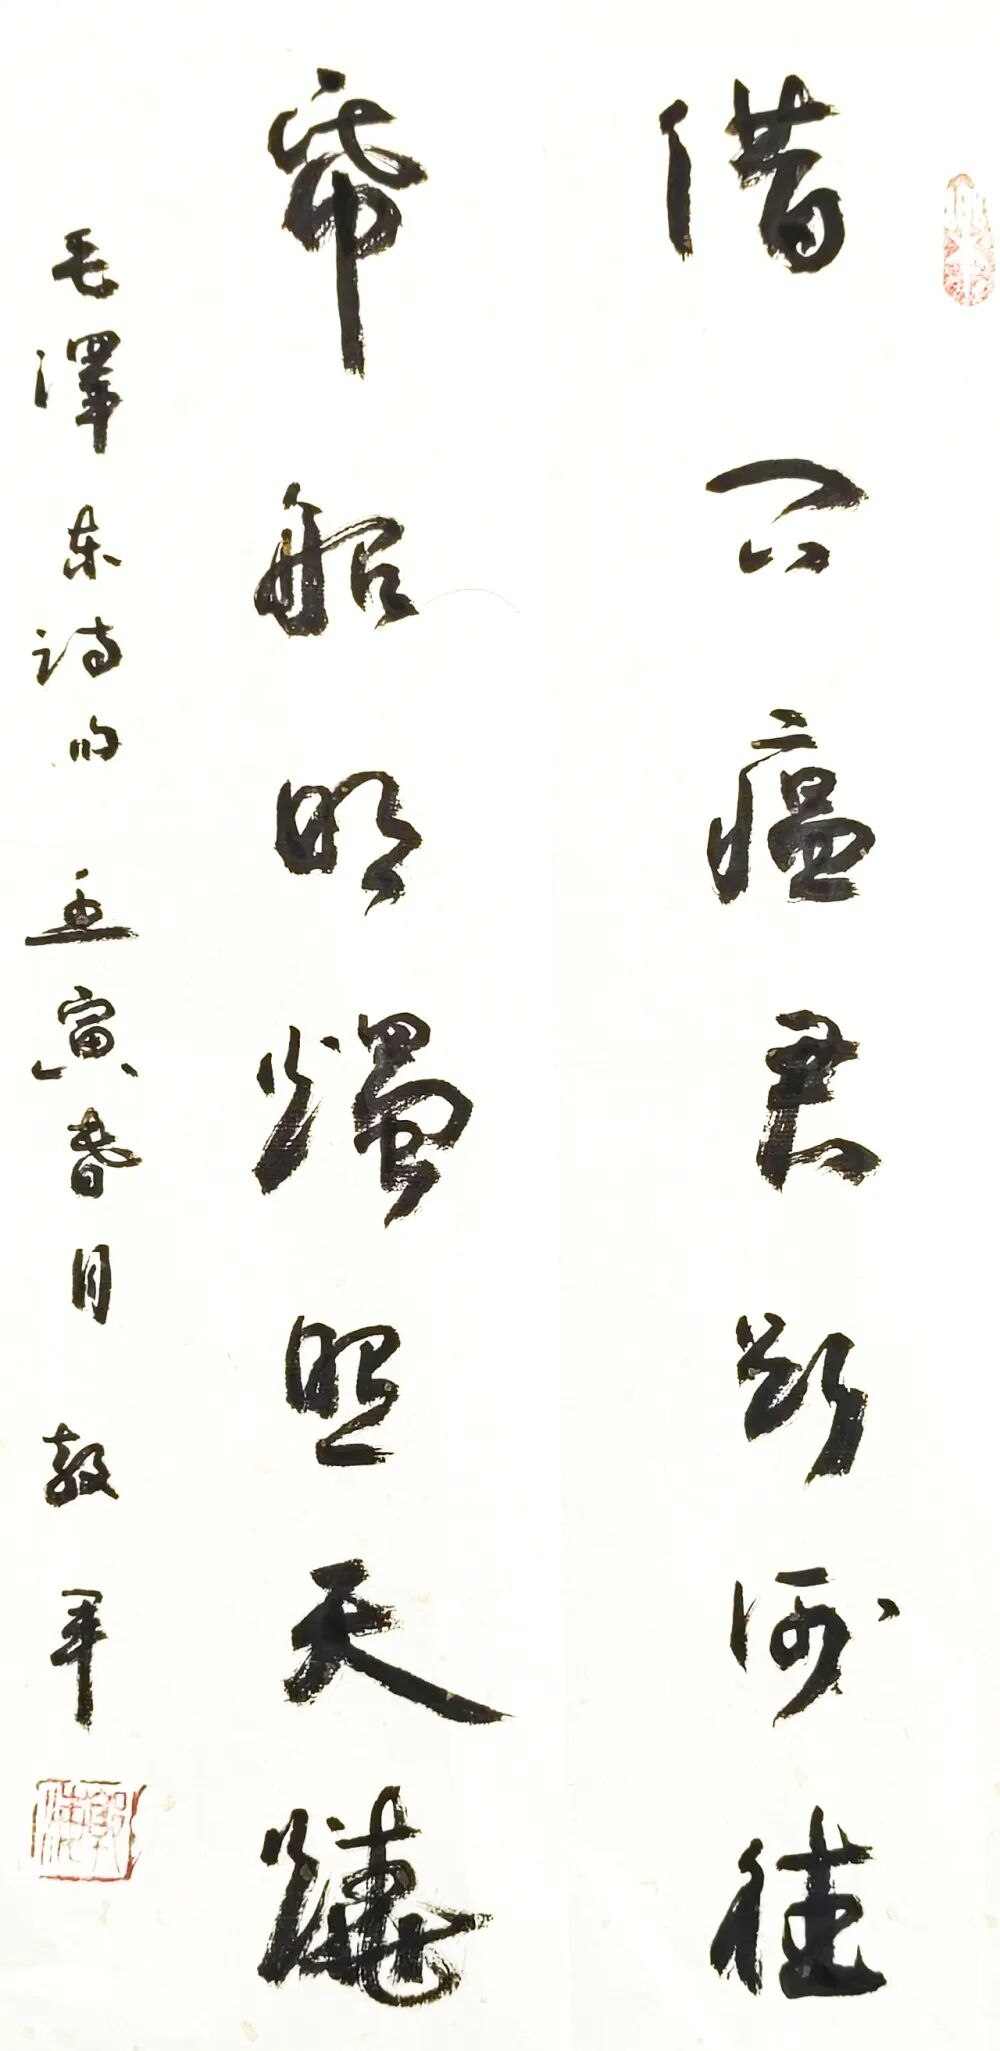 借问瘟君欲何往
帋船明燭照天燒
毛澤东诗句 壬寅春月 军